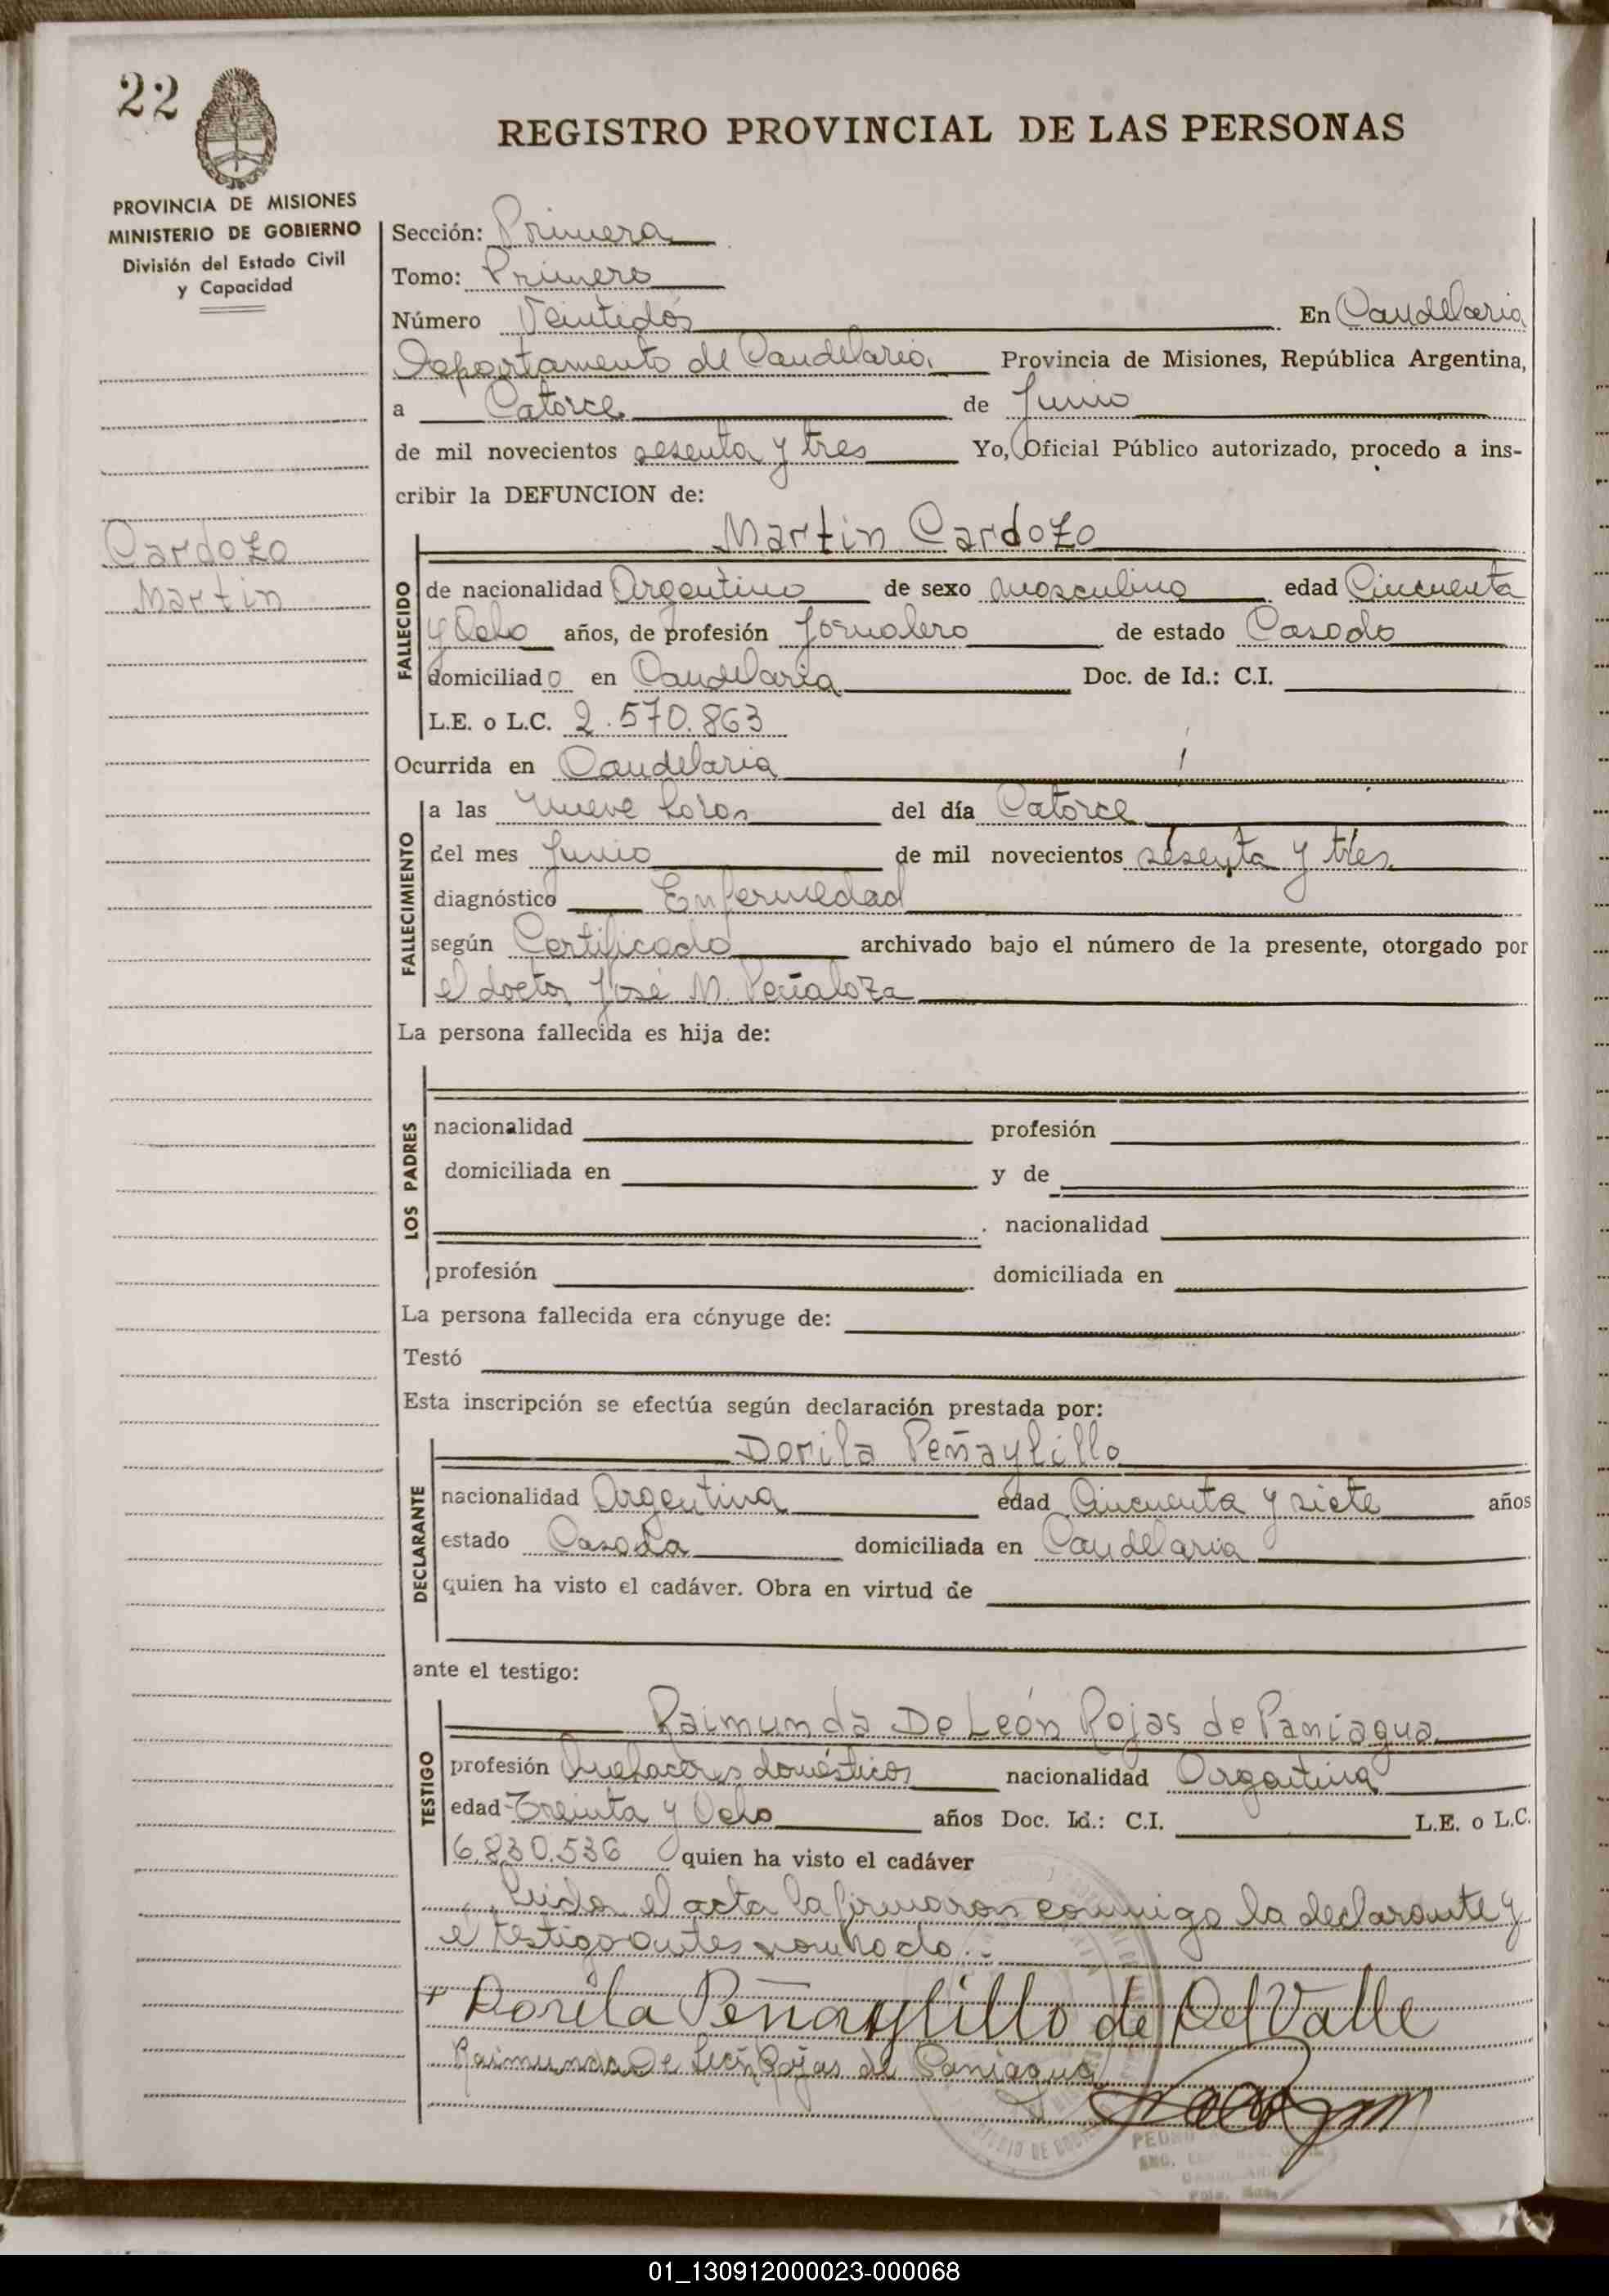 22
REGISTRO PROVINCIAL DE LAS PERSONAS
PROVINCIA DE MISIONES
MINISTERIO DE GOBIERNO
División del Estado Civil
y Capacidad
Sección: Primera
Tomo: Primero
Número Veintidós En Candelaria
Departamento de Candelaria, Provincia de Misiones, República Argentina,
a Catorce de Junio
de mil novecientos sesenta y tres Yo, Oficial Público autorizado, procedo a ins-
cribir la DEFUNCION de:
Cardozo
Martin
Martin Cardozo
FALLECIDO
de nacionalidad Argentino de sexo masculino edad Cincuenta
y Ocho años, de profesión Jornalero de estado Casado
domiciliado en Candelaria Doc. de Id.: C.I.
L.E. o L.C. 2.570.863
Ocurrida en Candelaria
FALLECIMIENTO
a las nueve horas del día Catorce
del mes Junio de mil novecientos sesenta y tres
diagnóstico Enfermedad
según Certificado archivado bajo el número de la presente, otorgado por
el doctor José M. Peñaloza
La persona fallecida es hija de:
LOS PADRES
nacionalidad profesión
domiciliada en y de
nacionalidad
profesión domiciliada en
La persona fallecida era cónyuge de:
Testó
Esta inscripción se efectúa según declaración prestada por:
Dorila Peñaylillo
DECLARANTE
nacionalidad Argentina edad Cincuenta y siete años
estado Casada domiciliada en Candelaria
quien ha visto el cadáver. Obra en virtud de
ante el testigo:
Raimunda De León Rojas de Paniagua
TESTIGO
profesión Quehaceres domésticos nacionalidad Argentina
edad Treinta y Ocho años Doc. Id.: C.I. L.E. o L.C.
6.830.536 quien ha visto el cadáver
Leida el acta la firmaron conmigo la declarante y
el testigo antes nombrado.
Dorila Peñaylillo de Del Valle
Raimunda De León Rojas de Paniagua
PEDRO
01_130912000023-000068